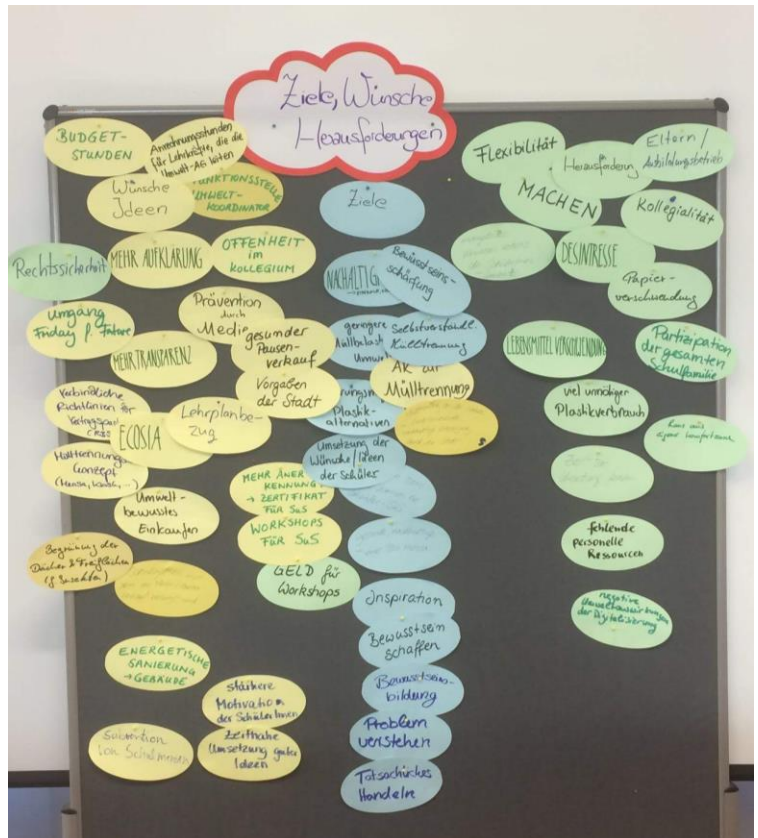 Ziele, Wünsche
Herausforderungen
BUDGET-
STUNDEN
Anrechnungsstunden
für Lehrkräfte, die die
Umwelt-AG leiten
Wünsche
Ideen
FUNKTIONSSTELLE
UMWELT-
KOORDINATOR
Rechtssicherheit
MEHR AUFKLÄRUNG
OFFENHEIT
im
KOLLEGIUM
Umgang
Friday f. Future
Prävention
durch
Medie
MEHR TRANSPARENZ
gesunder
Pausen-
verkauf
Vorgaben
der Stadt
Verbindliche
Richtlinien für
ECOSIA
Lehrplanbe-
zug
Mülltrennungs-
Konzept
Umwelt-
bewusstes
Einkaufen
MEHR ANER
KENNUNG
→ ZERTIFIKAT
FÜR SuS
WORKSHOPS
FÜR SuS
GELD für
Workshops
Begrünung der
Dächer & Freiflächen
ENERGETISCHE
SANIERUNG
→ GEBÄUDE
stärkere
Motivation
der SchülerInnen
Subvention
von Schulmensen
Zeitnahe
Umsetzung guter
Ideen
Ziele
NACHHALTIG
Bewusstseins-
schärfung
geringere
Müllbelast
Umwe
Selbstverständl.
Mülltrennung
AK zur
Mülltrennung
Plastik-
alternativen
Umsetzung der
Wünsche/Ideen
der Schüler
Inspiration
Bewusstsein
schaffen
Bewusstseins-
bildung
Problem
verstehen
Tatsächliches
Handeln
Flexibilität
Herausforderung
Eltern/
Ausbildungsbetrieb
MACHEN
Kollegialität
DESINTRESSE
Papier-
verschwendung
LEBENSMITTELVERSCHWENDUNG
Partizipation
der gesamten
Schulfamilie
viel unnötiger
Plastikverbrauch
fehlende
personelle
Ressourcen
negative
Umweltauswirkungen
der Digitalisierung